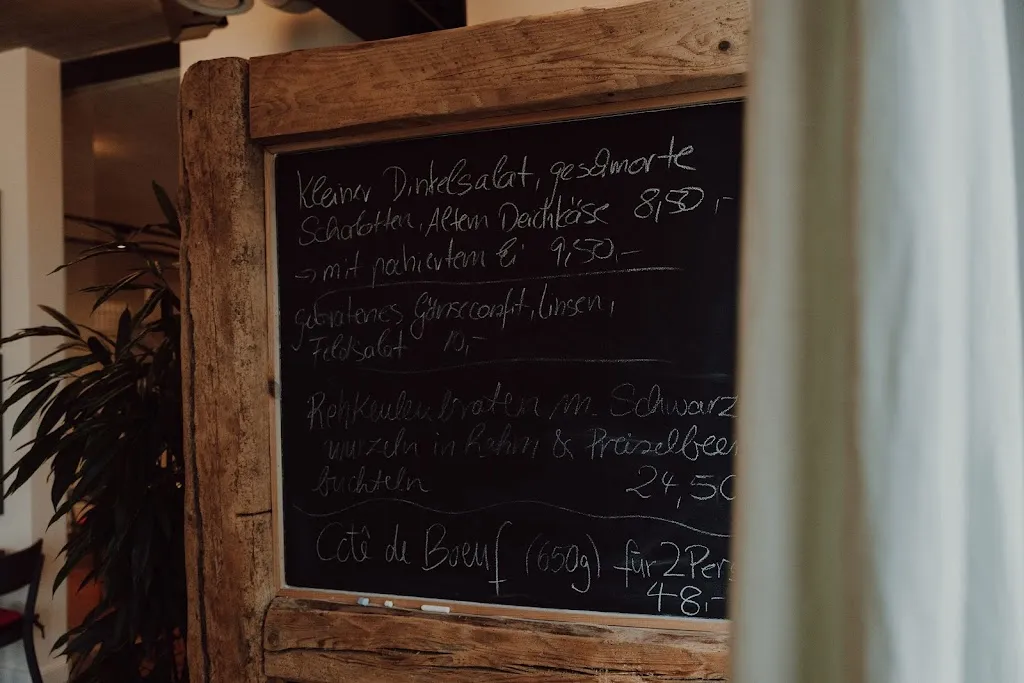 Kleiner Dinkelsalat, geschmorte
Schalotten, Altem Deichkäse 8,50,-
→ mit pochiertem Ei 9,50,-
gebratenes Gänseconfit, Linsen,
Feldsalat 10,-
Rehkeulenbraten m. Schwarz
wurzeln in Rahm & Preiselbeer
buchteln 24,50
Cotê de Boeuf (650g) für 2 Pers
48,-